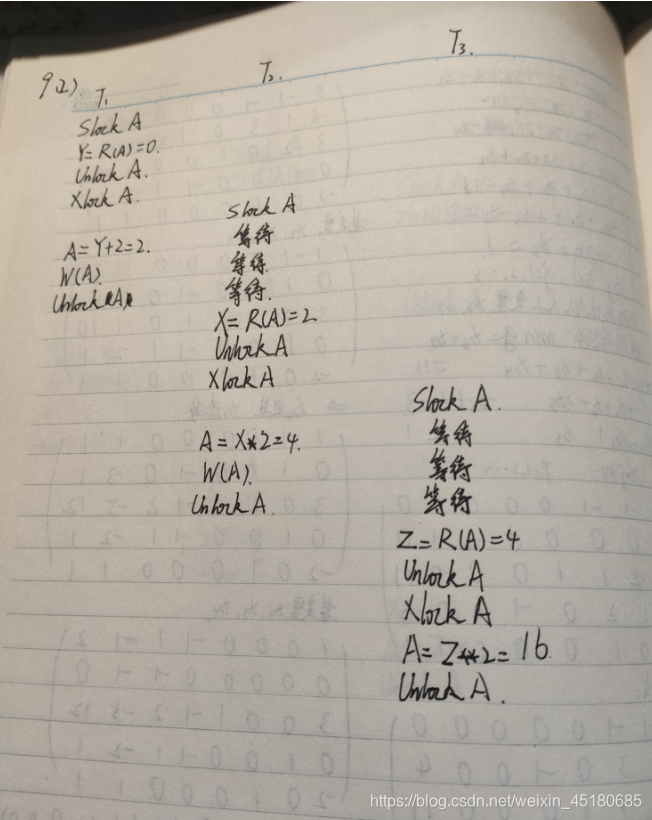 9(2)
T₁
T₂.
T₃.
Slock A
Y=R(A)=0.
Unlock A.
Xlock A.
A=Y+2=2.
W(A).
Unlock A.
Slock A
等待
等待
等待.
X=R(A)=2
Unlock A
Xlock A
A=X*2=4.
W(A).
Unlock A.
Slock A.
等待
等待
等待
Z=R(A)=4
Unlock A
Xlock A
A=Z**2=16.
Unlock A.
https://blog.csdn.net/weixin_45180685